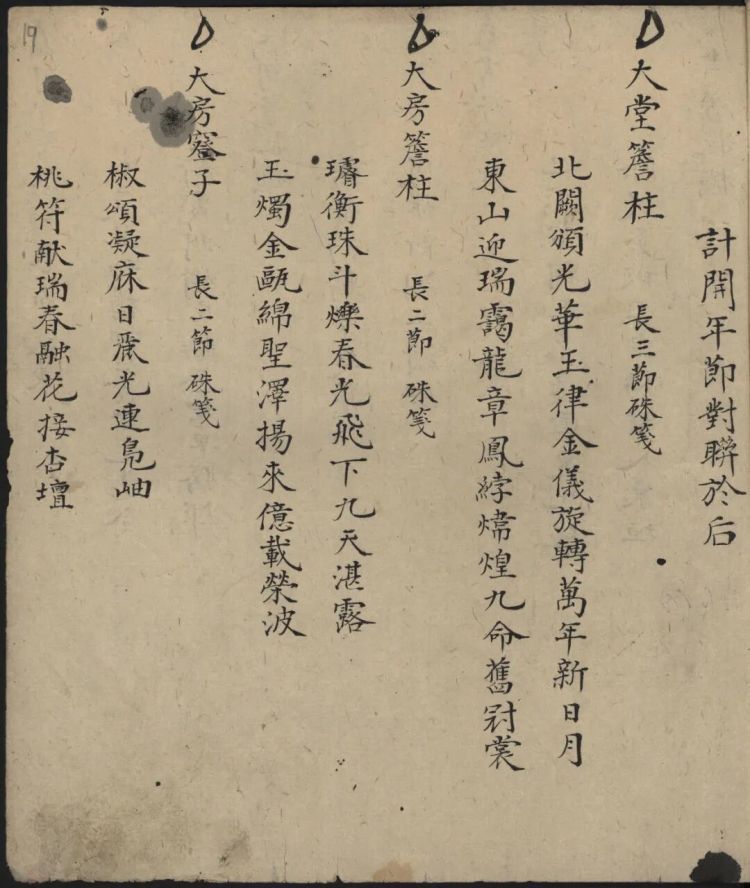 計開年節對聯於后
大堂簷柱 長三節硃箋
北闕頒光華玉律金儀旋轉萬年新日月
東山迎瑞靄龍章鳳綍煒煌九命舊冠裳
大房簷柱 長二節 硃箋
璿衡珠斗爍春光飛下九天湛露
玉燭金甌綿聖澤揚來億載榮波
大房窻子 長二節 硃箋
椒頌凝庥日飛光連鳧岫
桃符献瑞春融花接杏壇
19